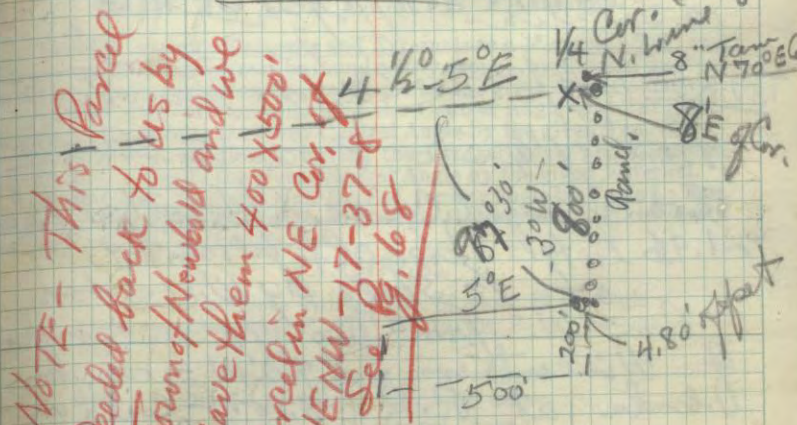 NOTE - This Parcel
deeded back to us by
Town of Newbold and we
gave them 400 X 500'
Parcel in NE Cor. of
NENW-17-37-8
See Pg. 68
4 ½°-5°E
1/4 Cor.
N. Line
8" Tam
N70°E
8'E
of Cor.
Panel,
30'
5°E
-3°W-
800'
200'
500'
4.80'